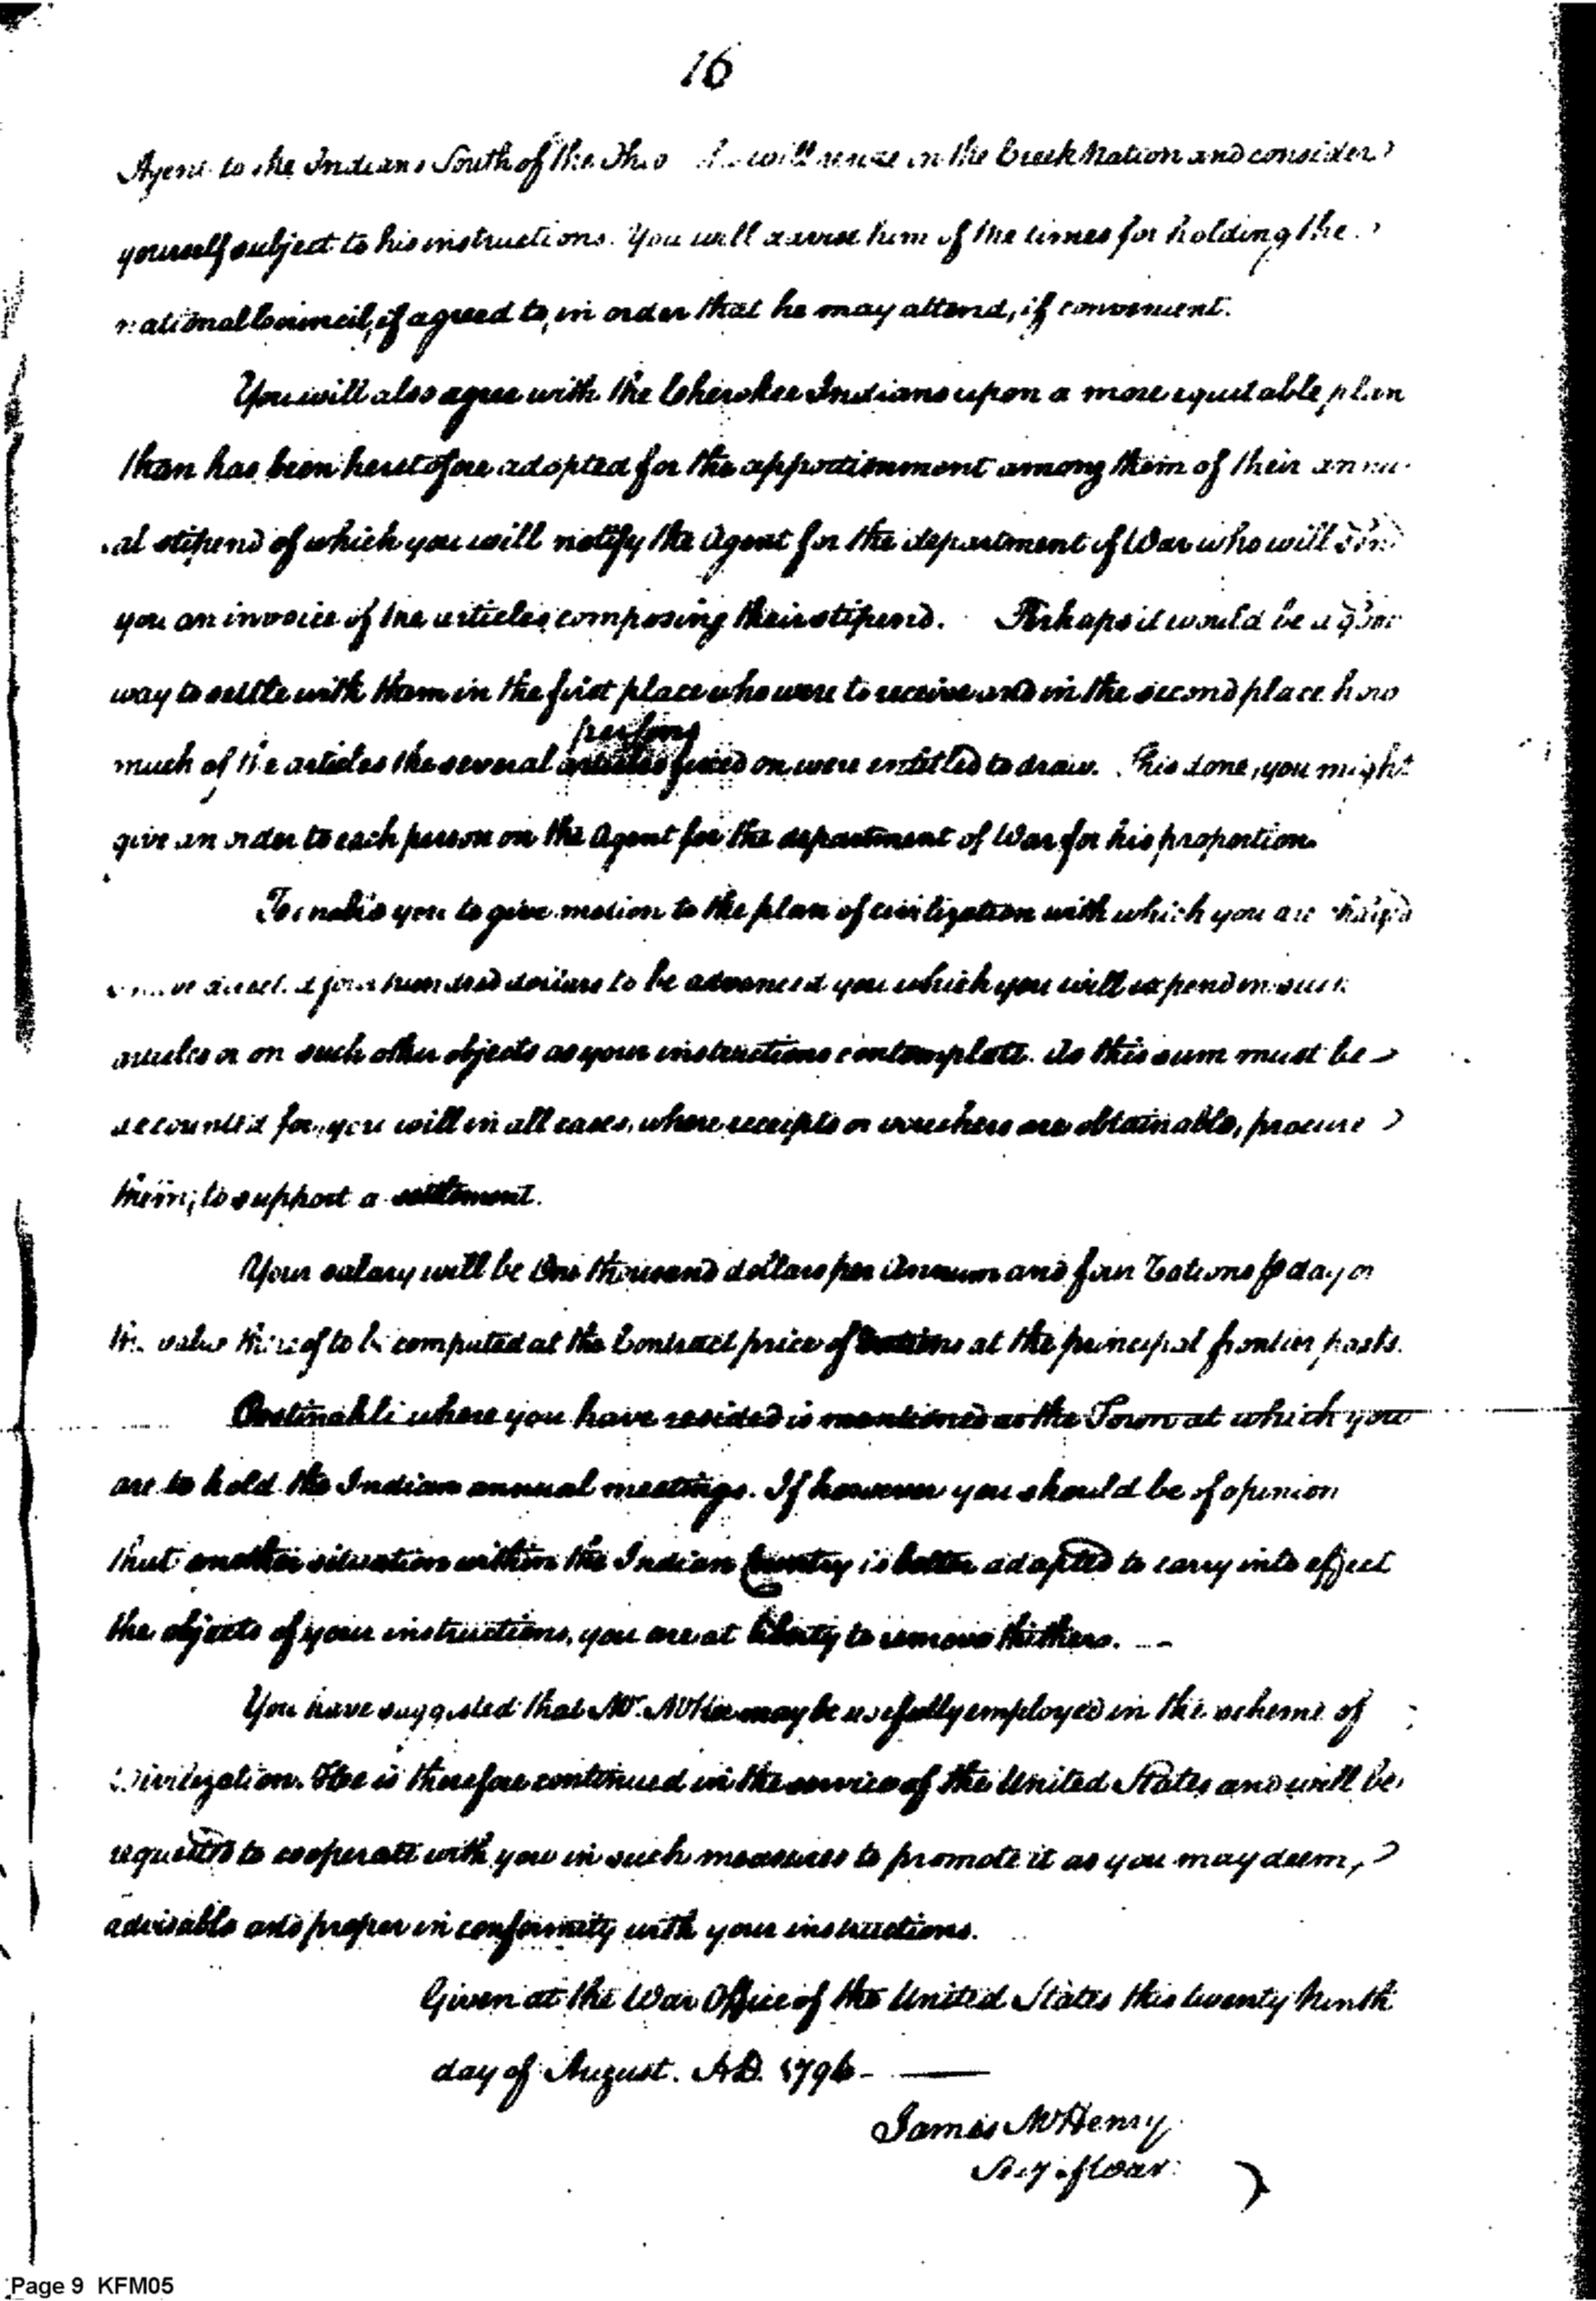 16
Agent to the Indians South of the Ohio will in the Creek Nation and consider
yourself subject to his instructions. You will advise him of the times for holding the
national Council, if agreed to, in order that he may attend, if convenient.
You will also agree with the Cherokee Indians upon a more equitable plan
than has been heretofore adopted for the apportionment among them of their annu-
al stipend of which you will notify the Agent for the department of War who will send
you an invoice of the articles composing their stipend. Perhaps it would be a good
way to settle with them in the first place who were to receive and in the second place how
persons
much of the articles the several articles fixed on were entitled to draw. This done, you might
give an order to each person on the Agent for the department of War for his proportion.
To enable you to give motion to the plan of civilization with which you are charged
I have directed four hundred dollars to be advanced you which you will expend in such
articles or on such other objects as your instructions contemplate. As this sum must be
accounted for, you will in all cases, where receipts or vouchers are obtainable, procure
them, to support a settlement.
Your salary will be One thousand dollars per Annum and four rations ⅌ day or
the value thereof to be computed at the Contract price of rations at the principal frontier posts.
where you have resided is mentioned as the Town at which you
are to hold the Indian annual meetings. If however you should be of opinion
that another situation within the Indian Country is better adapted to carry into effect
the objects of your instructions, you are at liberty to remove thither.
You have suggested that Mr. McKee may be usefully employed in the scheme of
Civilization. Hee is therefore continued in the service of the United States and will be
requested to cooperate with you in such measures to promote it as you may deem,
advisable and proper in conformity with your instructions.
Given at the War Office of the United States this twenty Ninth
day of August. A.D. 1796
James McHenry
Secy of War
Page 9 KFM05